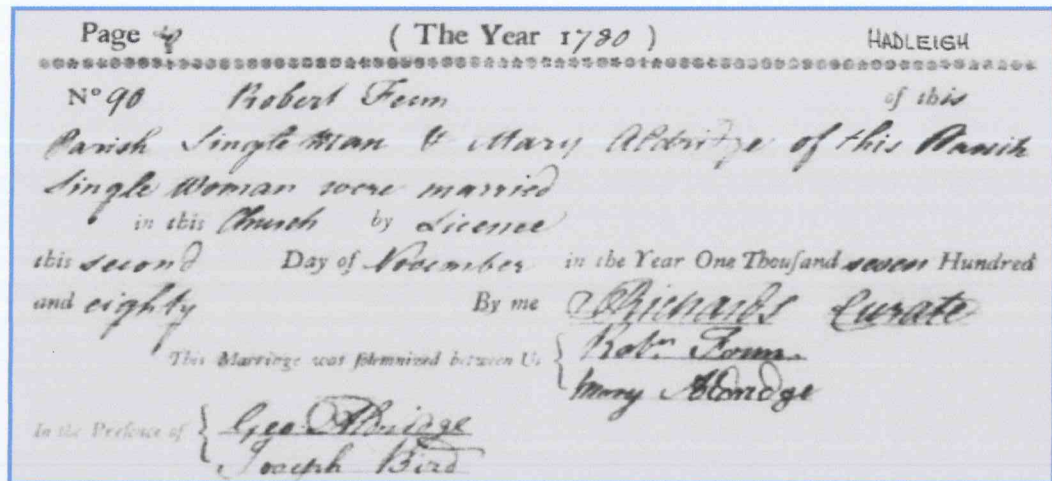 Page ( The Year 1780 ) HADLEIGH
No 90 Robert Fenn of this
Parish Single Man & Mary Aldridge of this Parish
Single Woman were married
in this Church by Licence
this second Day of November in the Year One Thousand seven Hundred
and eighty By me Richards Curate
This Marriage was solemnized between Us { Robt Fenn
Mary Aldridge
In the Presence of { Geo Aldridge
Joseph Bird